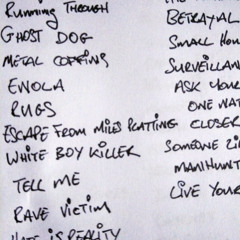 Running Through
Ghost Dog
Metal Coffins
Enola
Rugs
Escape From Miles Platting
White Boy Killer
Tell Me
Rave Victim
is Reality
Betrayal
Small
Ask
One
Closer
Someone
Live Your